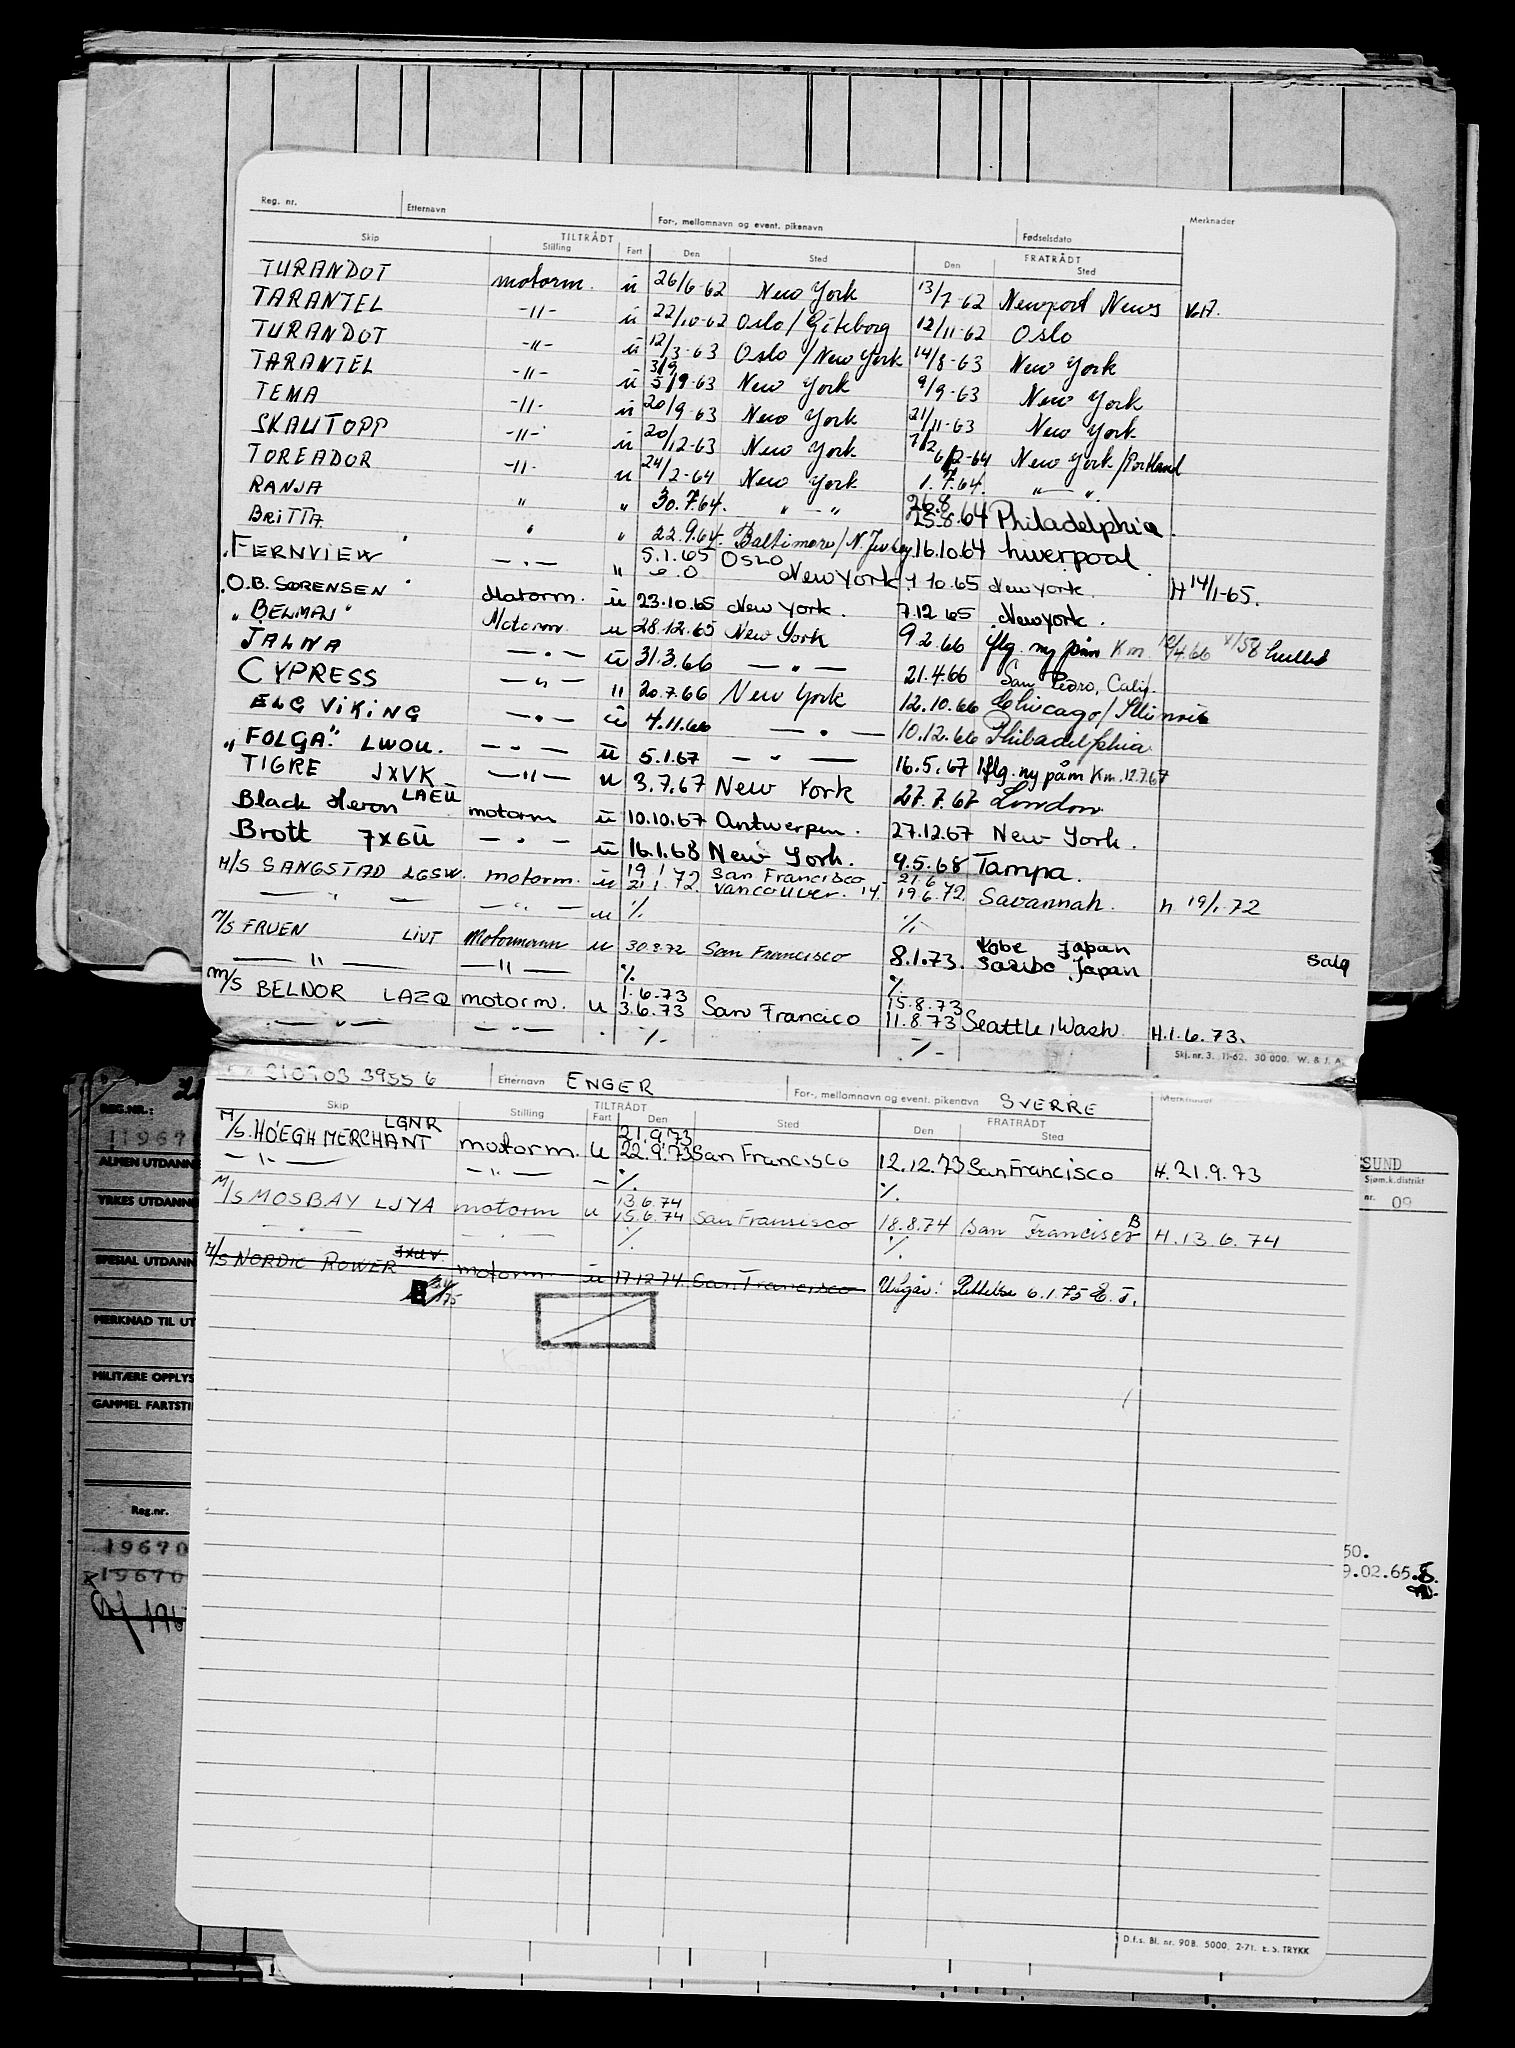 Reg. nr. Etternavn For-, mellomnavn og event. pikenavn Fødselsdato Merknader
Skip TILTRÅDT Stilling Fart Den Sted FRATRÅDT Den Sted
TURANDOT motorm. u 26/6-62 New York 13/7-62 Newport News
TARANTEL -"- u 22/10-62 Oslo/Göteborg 12/11-62 Oslo
TURANDOT -"- u 12/3-63 Oslo/New York 14/8-63 New York
TARANTEL -"- u 3/9 5/9-63 New York 9/9-63 New York
TEMA -"- u 20/9-63 New York 21/11-63 New York
SKAUTOPP -"- u 20/12-63 New York 7/2 6/2-64 New York/Portland
TOREADOR -"- u 24/2-64 New York 1.7.64. " — "
RANJA " " 30.7.64. " - " 26.8 25.8.64 Philadelphia.
BRITTA " " 22.9.64. Baltimore/N. Jersey 16.10.64 Liverpool.
FERNVIEW - " - " 5.1.65 OSLO New York 1.10.65 New York. H 14/1-65.
O.B. SØRENSEN Motorm. u 23.10.65 New York. 7.12 65 New York.
"BELMAJ" Motorm. u 28.12.65 New York 9.2.66 iflg. ny påm Km.
JALNA - " - u 31.3.66 — " — 21.4.66 San Pedro, Calif.
CYPRESS - " - " 20.7.66 New York 12.10.66 Chicago/Illinois
ELG VIKING - " - u 4.11.66 — " — 10.12.66 Philadelphia
"FOLGA" LWOU. - " - u 5.1.67 — " — 16.5.67 Iflg. ny påm Km. 12.7.67
TIGRE JXVK — " — u 3.7.67 New York 27.7.67 London
Black Heron LAEU motorm u 10.10.67 Antwerpen. 27.12.67 New York.
Brott JXGU - " - u 16.1.68 New York. 9.5.68 Tampa.
M/S SANGSTAD LGSW. motorm. u 19.1.72 21.1.72 San Francisco Vancouver. 21.6 19.6.72. Savannah. H 19/1-72
— " — - " - u %. %.
M/S FRUEN LIVT Motormann u 30.8.72 San Francisco 8.1.73. Kobe Japan Salg
— " — — " — %. %.
M/S BELNOR LAZQ motorm. u 1.6.73 3.6.73 San Francico 15.8.73 11.8.73 Seattle, Wash H.1.6.73.
— " — - " - %- %-
Skj. nr. 3. 11-62. 30 000. W. & J. A.
210903 39556 Etternavn ENGER For-, mellomnavn og event. pikenavn SVERRE Merknader
Skip Stilling TILTRÅDT Fart Den Sted FRATRÅDT Den Sted
M/S. HÖEGH MERCHANT LGNR motorm. u 21.9.73 22.9.73 San Francisco 12.12.73 San Francisco H. 21.9.73
- " — - " — - %. %.
M/S MOSBAY LJYA motorm u 13.6.74 15.6.74 San Fransisco 18.8.74 San Francisco H. 13.6.74
— " — - " - %. %.
M/S NORDIC ROWER JXUV. motorm u 17.12.74. San Francisco Utgår: Rettelse 6.1.75 E. T.
D.f.s. Bl. nr. 90B. 5000. 2-71. E. S. TRYKK
REG.NR.:
ALMEN UTDANNE
YRKES UTDANNE
SPESIAL UTDANN
MERKNAD TIL UT
MILITÆRE OPPLYS
GAMMEL FARTSTI
Reg.nr.
19670
x19670
SUND
Sjøm.k.distrikt
nr. 09
50.
9.02.65.